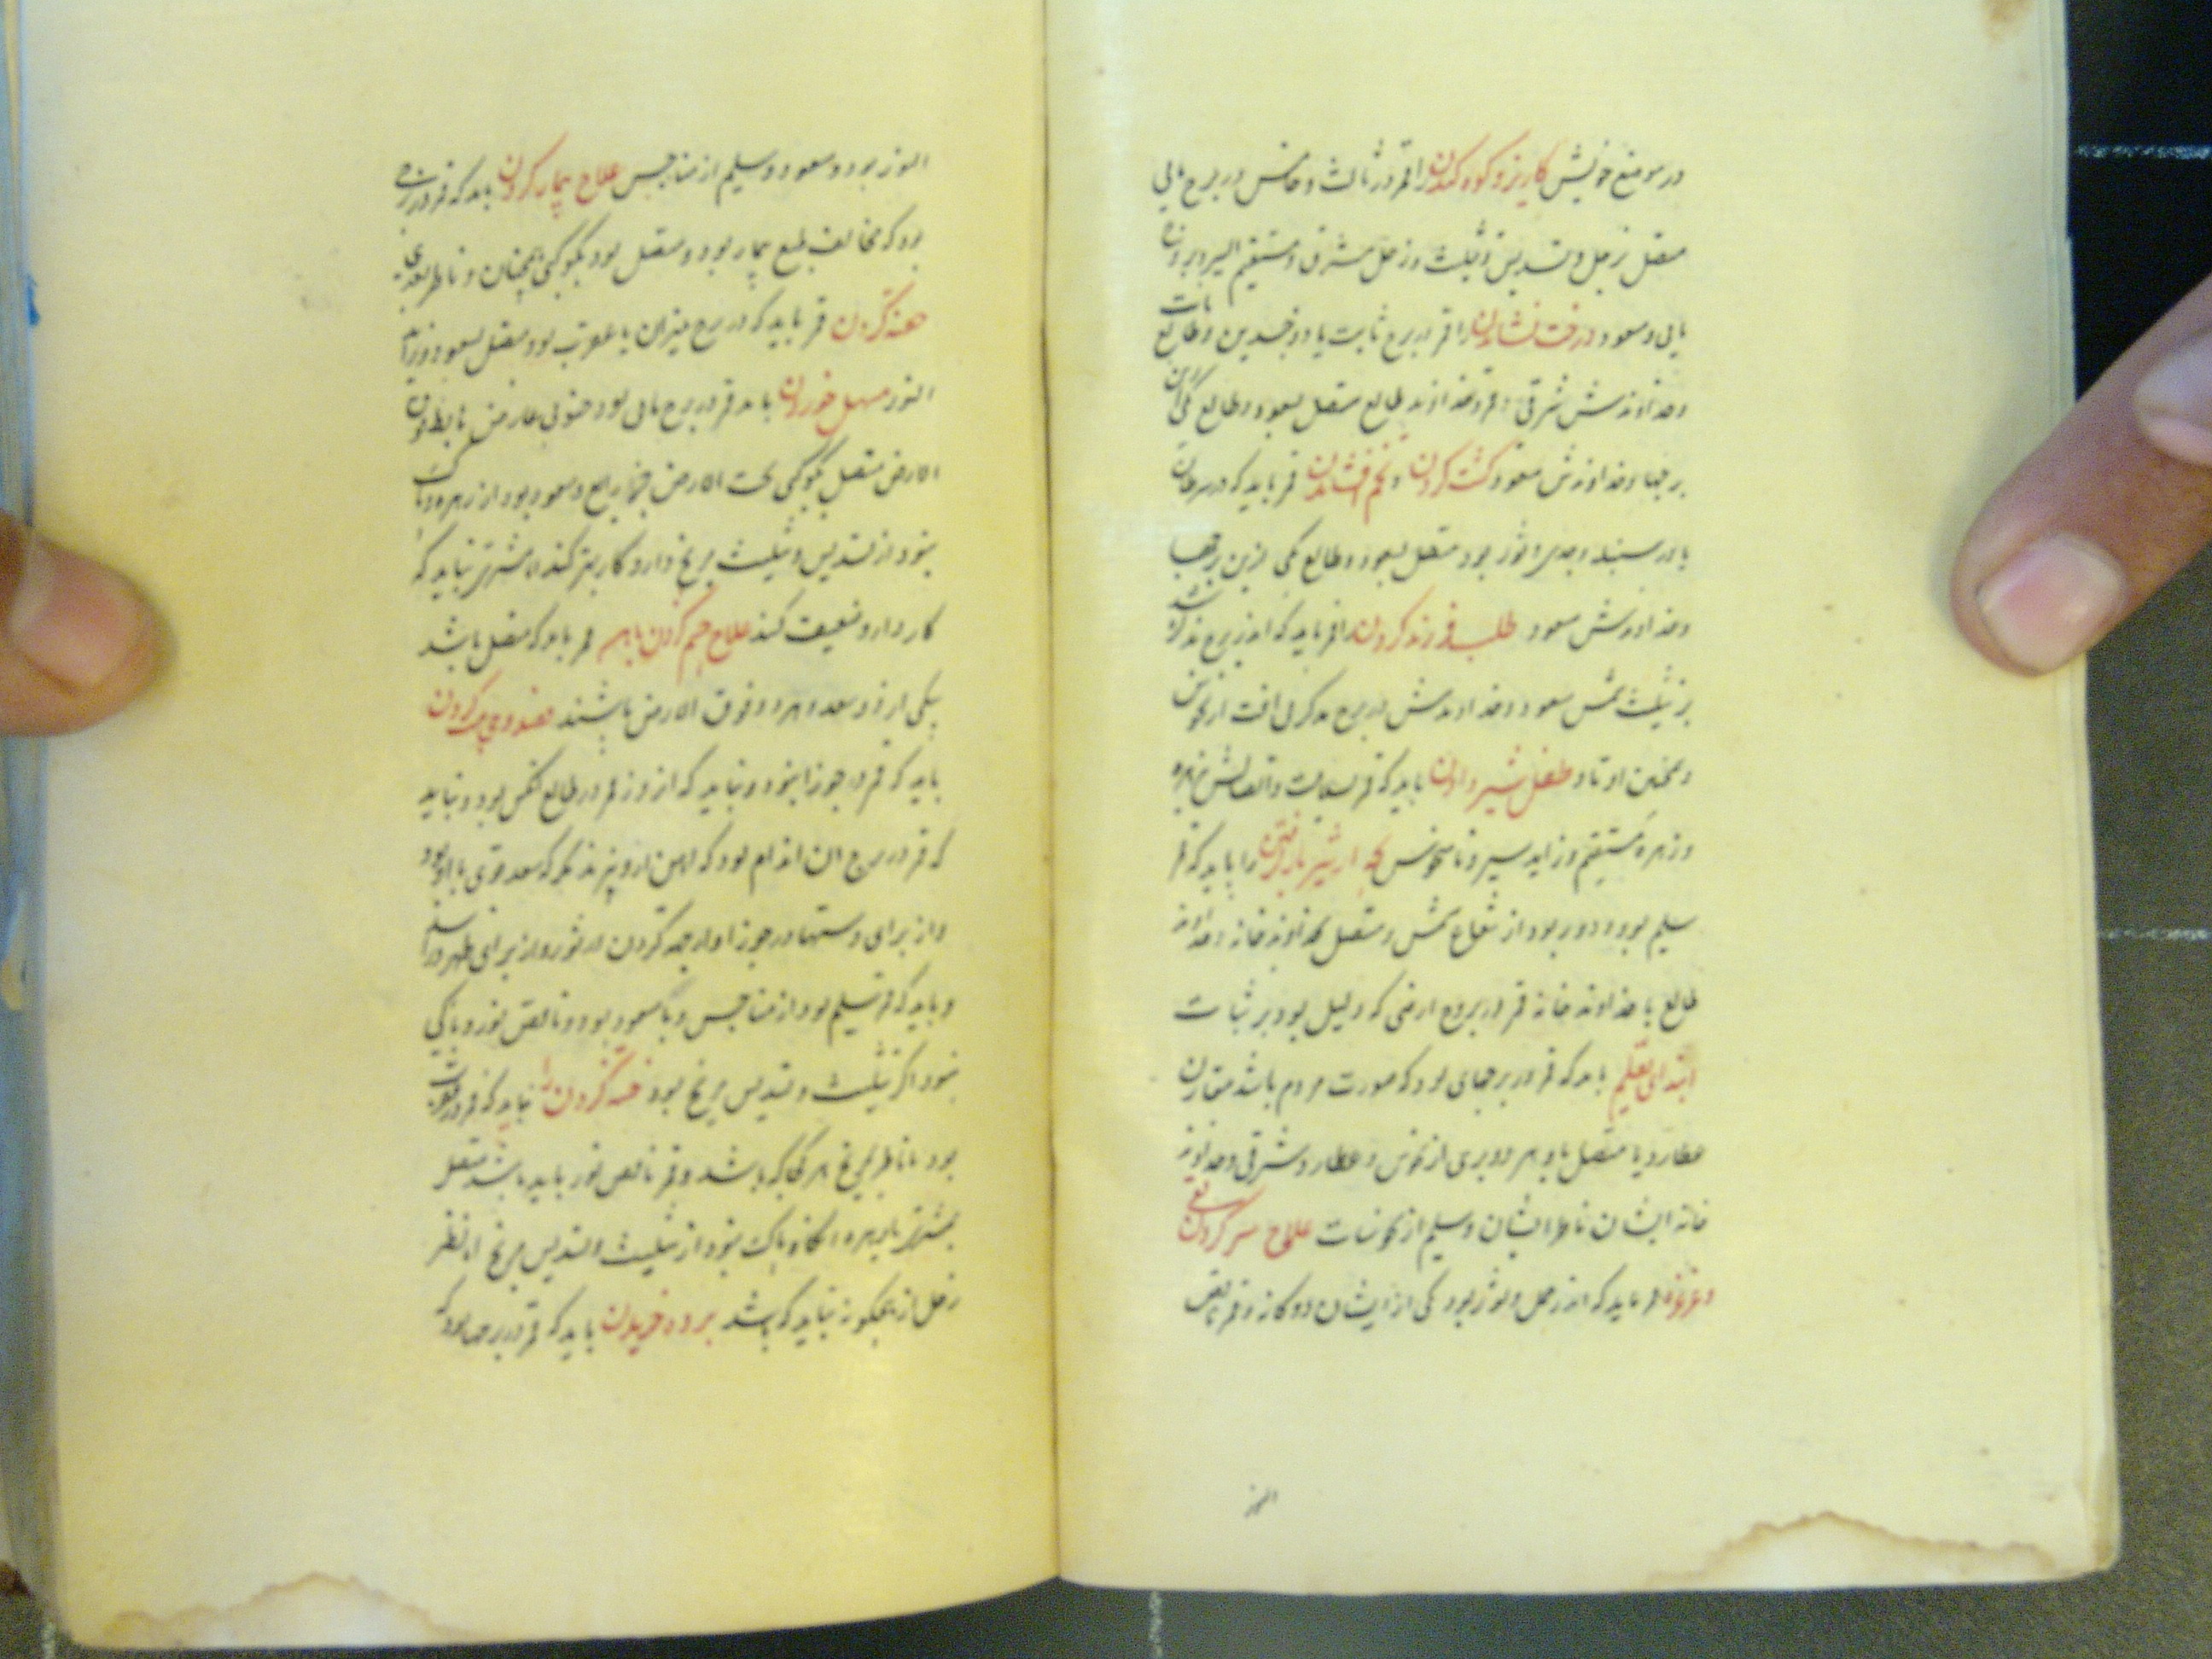 در موضع خویش کاریز و کوه کندن را قمر در ثالث و خامس در برج مایی
متصل بزحل و تسدیس و تثلیث و زحل مشرق و مستقیم السیر و برج
مایی و مسعود درخت نشاندن را قمر در برج ثابت یا ذوجسدین و طالع ثابت
و خداوندش شرقی و قمر و خداوند طالع متصل بسعود و طالع یکی از این
برجها و خداوندش مسعود کشت کردن و تخم افشاندن قمر باید که در سرطان
یا در سنبله و جدی و ثور بود متصل بسعود و طالع یکی ازین برجها
و خداوندش مسعود طلب فرزند کردن را قمر باید که اندر برج مذکر باشد
بر تثلیث شمس مسعود و خداوندش در برج مذکر بی آفت از نحوس
و همچنین اوتاد طفل شیر دادن باید که قمر بسلامت و اتصالش بزهره
و زهره مستقیم و زاید سیر و نامنحوس بچه از شیر باز گرفتن را باید که قمر
سلیم بود و دور بود از شعاع شمس و متصل بخداوند خانه و خداوند
طالع یا خداوند خانه قمر در بروج ارضی که دلیل بود بر ثبات
ابتدای تعلیم باید که قمر در برجهای بود که صورت مردم باشد مقارن
عطارد یا متصل باو هر دو بری از نحوس و عطارد شرقی و خداوند
خانه ایشان ناظر ایشان و سلیم از نحوسات علاج سر کردن بسعی
و غرغره قمر باید که اندر حمل و ثور بود یکی از ایشان دو کانه و قمر ناقص
النور
النور بود و مسعود و سلیم از مناحس علاج بیمار کردن باید که قمر در برجی
بود که مخالف طبع بیمار بود و متصل بود بکوکبی همچنان و ناظر بعدی
حقنه کردن قمر باید که در برج میزان یا عقرب بود متصل بسعود و زاید
النور مسهل خوردن باید قمر در برج مایی بود جنوبی عارض هابط فوق
الارض متصل بکوکبی تحت الارض در برج و مسعود بود از زهره و پاک
بنود از تسدیس و تثلیث مریخ دارو کار بهتر کند اما مشتری نباید که
کار دارو ضعیف کند علاج چشم کردن بآهن قمر باید که متصل باشد
بیکی از دو سعد و هر دو فوق الارض باشند فصد و حجامت کردن
باید که قمر در جوزا بنود و نباید که آن روز قمر در طالع کس بود و نباید
که قمر در برج آن اندام بود که آهن ازو پرهیزد مگر که سعد قوی با او بود
و از برای دستها در جوزا و از جهت گردن در ثور و از برای ظهر در اسد
و باید که قمر سلیم بود از مناحس و با مسعود بود و ناقص نور و باکی
نبود اگر تثلیث و تسدیس مریخ بود ختنه کردن را نباید که قمر در عقرب
بود یا ناظر بمریخ هر کجا که باشد و قمر ناقص نور باید باشد متصل
بمشتری یا بزهره آنگاه باک نبود از تثلیث و تسدیس مریخ اما نظر
زحل از هیچگونه نباید که باشد برده خریدن باید که قمر در برجها بود که